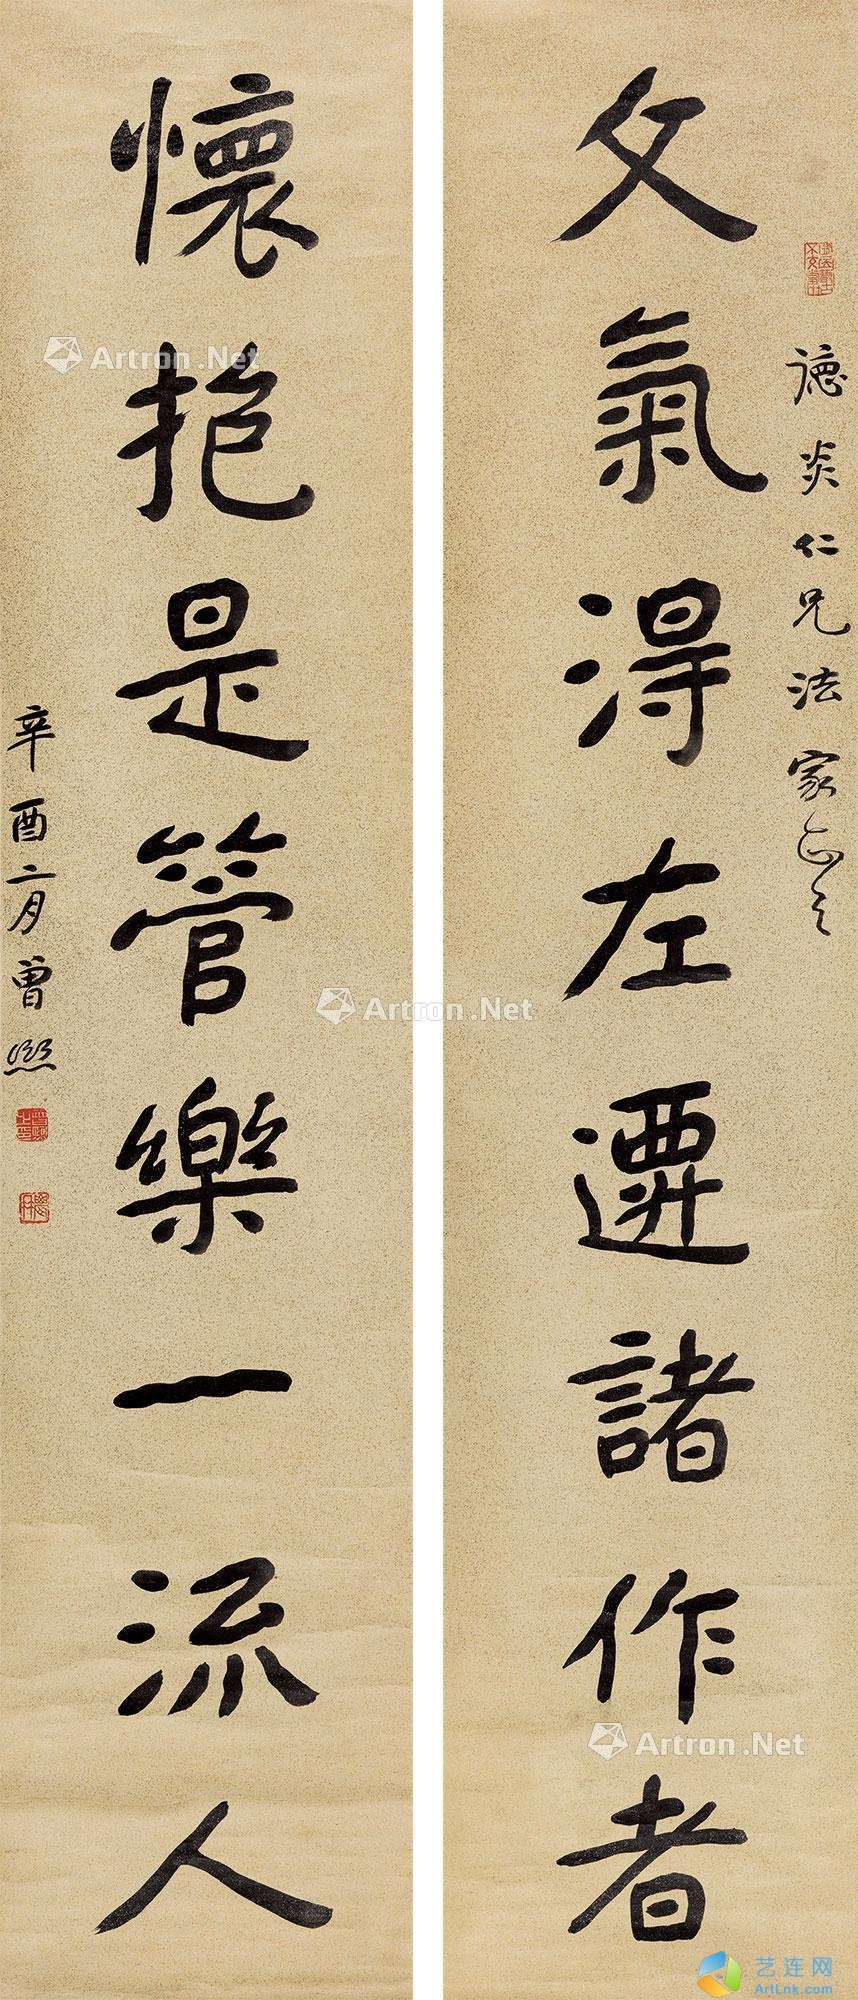 德炎仁兄法家正之
文氣得左遷諸作者
懷抱是管樂一流人
辛酉二月曾熙
Artron.Net
Artron.Net
Artron.Net
艺连网
ArtLnk.com